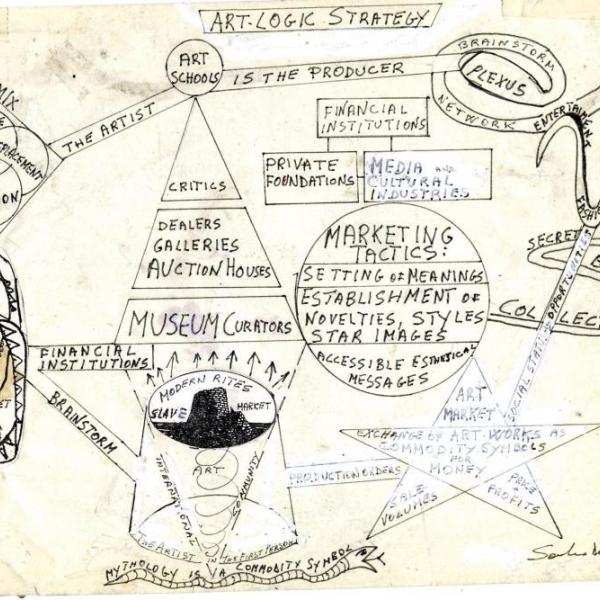 ART-LOGIC STRATEGY
BRAINSTORM
PLEXUS
NETWORK
ART
SCHOOLS
IS THE PRODUCER
THE ARTIST
MIX
ENTERTAINMENT
FINANCIAL
INSTITUTIONS
PRIVATE
FOUNDATIONS
MEDIA AND
CULTURAL
INDUSTRIES
CRITICS
DEALERS
GALLERIES
AUCTION HOUSES
MUSEUM CURATORS
MARKETING
TACTICS:
SETTING OF MEANINGS
ESTABLISHMENT OF
NOVELTIES, STYLES
STAR IMAGES
ACCESSIBLE ESTHETICAL
MESSAGES
SECRET
FINANCIAL
INSTITUTIONS
BRAINSTORM
MODERN RITES
SLAVE MARKET
ART
INTERNATIONAL
COMMUNITY
THE ARTIST IN THE FIRST PERSON
MYTHOLOGY IS A COMMODITY SYMBOL
PRODUCTION ORDERS
SOCIAL STATUS OPPORTUNITIES
ART
MARKET
EXCHANGE OF ART-WORKS AS
COMMODITY SYMBOLS
FOR
MONEY
SALE
VOLUMES
PRICE
PROFITS